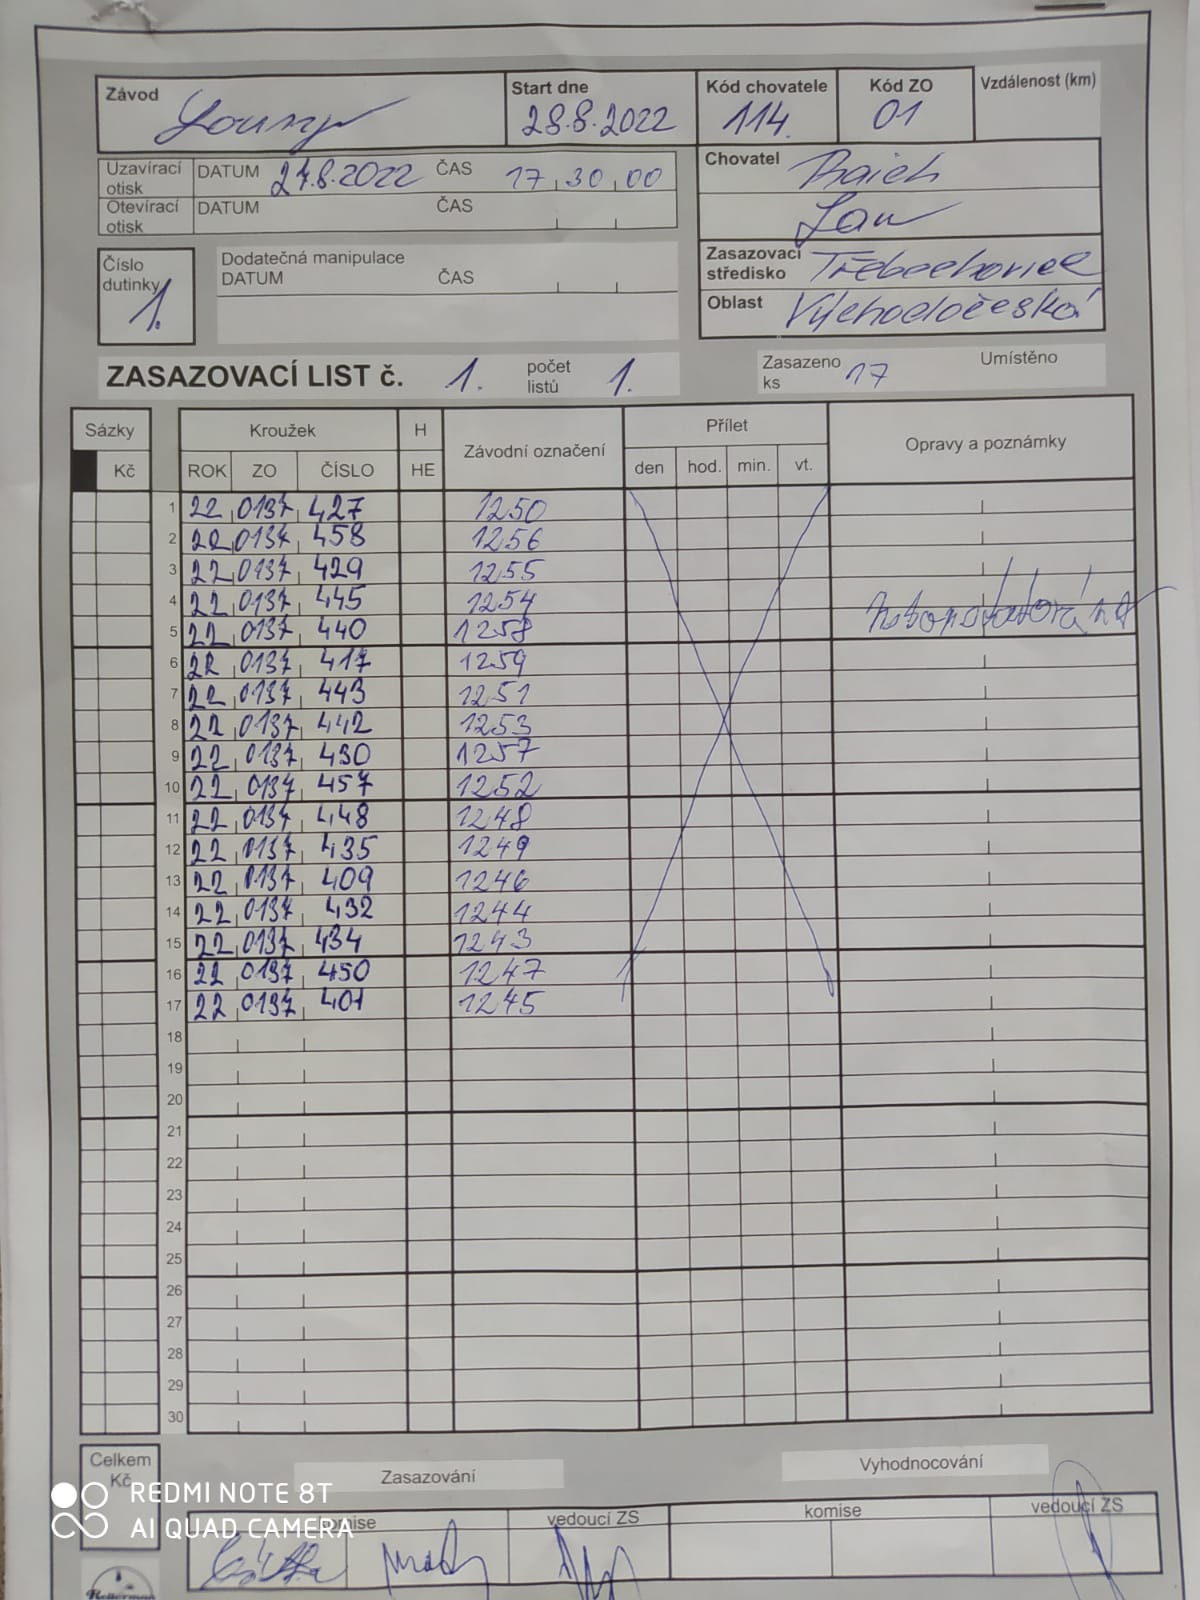 Závod Louny Start dne 28.8.2022 Kód chovatele 114. Kód ZO 01 Vzdálenost (km)
Uzavírací otisk DATUM 27.8.2022 ČAS 17 30 00
Otevírací otisk DATUM ČAS
Chovatel
Jan
Zasazovací středisko Třebechovice
Oblast Východočeská
Číslo dutinky 1.
Dodatečná manipulace
DATUM ČAS
ZASAZOVACÍ LIST č. 1. počet listů 1. Zasazeno ks 17 Umístěno
Sázky Kroužek H Závodní označení Přílet Opravy a poznámky
Kč ROK ZO ČÍSLO HE den hod. min. vt.
1 22 0137 427 1250
2 22 0137 458 1256
3 22 0137 429 1255
4 22 0137 445 1254
5 22 0137 440 1258
6 22 0137 417 1259
7 22 0137 443 1251
8 22 0137 442 1253
9 22 0137 430 1257
10 22 0137 457 1252
11 22 0137 448 1248
12 22 0137 435 1249
13 22 0137 409 1246
14 22 0137 432 1244
15 22 0137 434 1243
16 22 0137 450 1247
17 22 0137 401 1245
18
19
20
21
22
23
24
25
26
27
28
29
30
Celkem Kč
Zasazování Vyhodnocování
komise vedoucí ZS komise vedoucí ZS
REDMI NOTE 8T
AI QUAD CAMERA